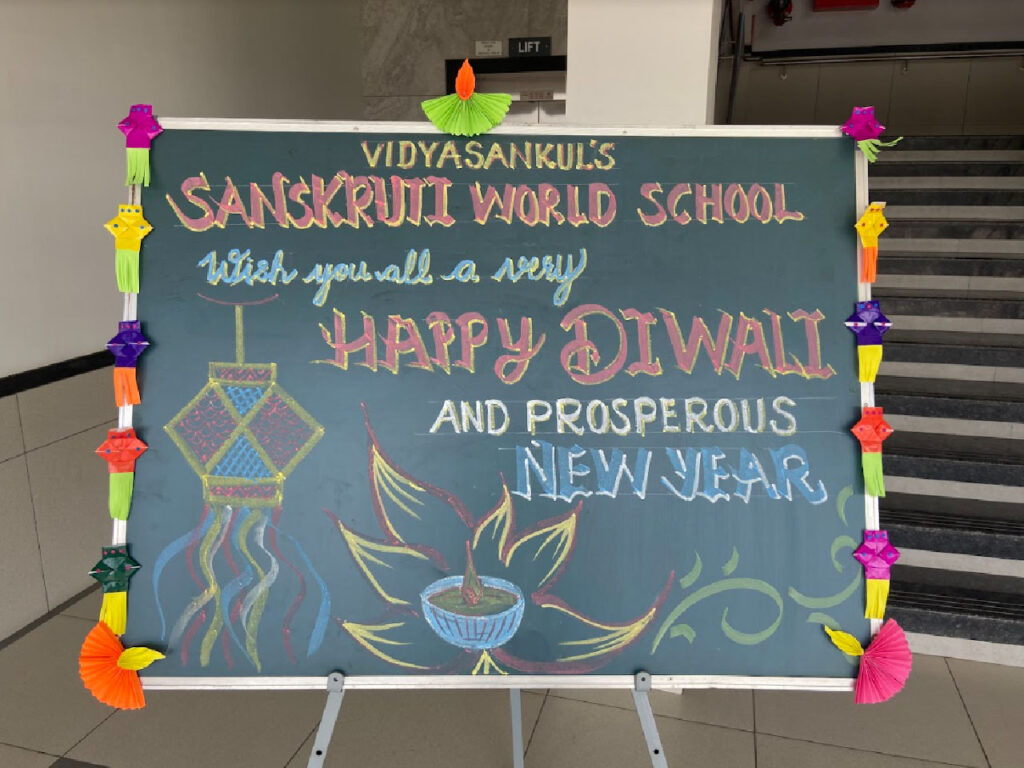 LIFT
VIDYASANKUL'S
SANSKRUTI WORLD SCHOOL
Wish you all a very
HAPPY DIWALI
AND PROSPEROUS
NEW YEAR